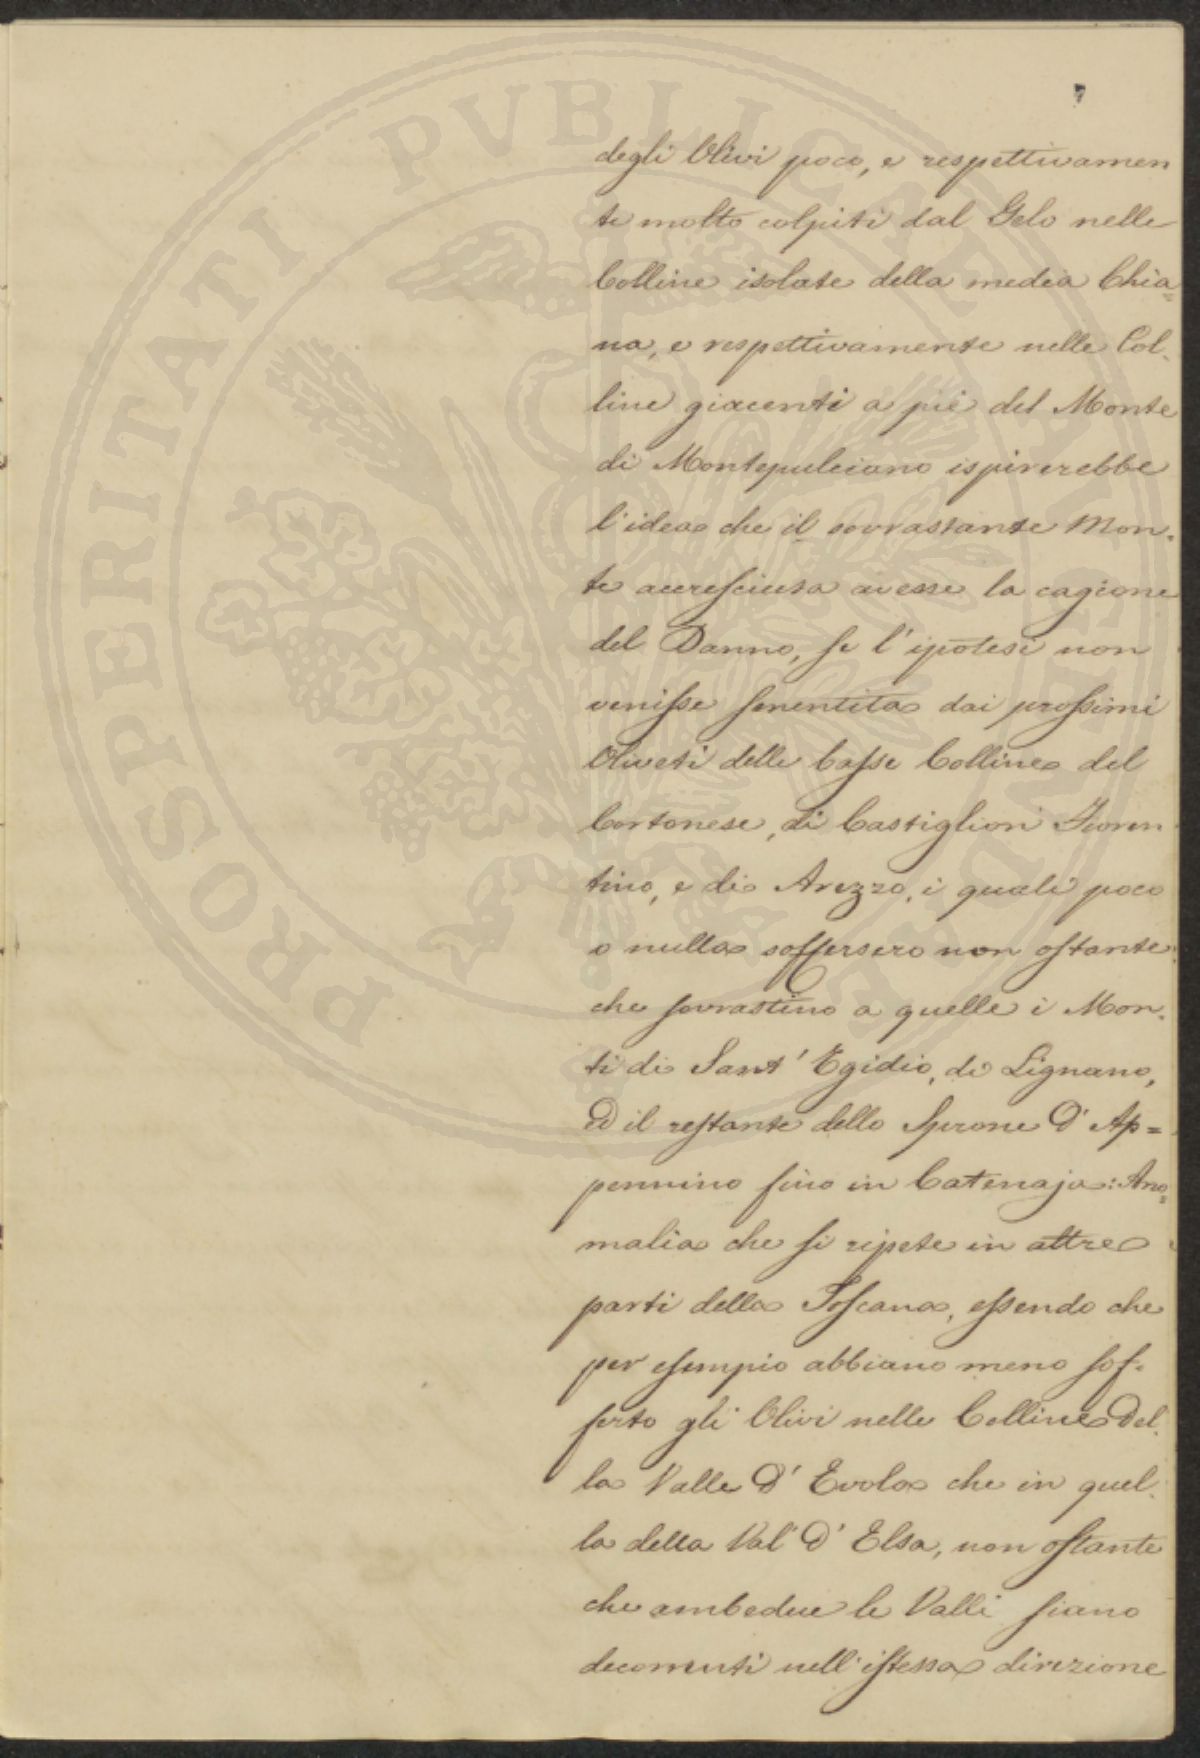 PROSPERITATI PVBLICAE AVGENDAE
7
degli Olivi poco, e respettivamen
te molto colpiti dal Gelo nelle
Colline isolate della media Chia=
na, e respettivamente nelle Col=
line giacenti a piè del Monte
di Montepulciano ispirerebbe
l'idea che il sovrastante Mon=
te accresciuta avesse la cagione
del Danno, se l'ipotesi non
venisse smentita dai prossimi
Oliveti delle basse Colline del
Cortonese, di Castiglion Fioren
tino, e di Arezzo, i quali poco
o nulla soffersero non ostante
che sovrastino a quelle i Mon=
ti di Sant' Egidio, di Lignano,
ed il restante dello Sprone D' Ap=
pennino fino in Catenaja: Ano=
malia che si ripete in altre
parti della Toscana, essendo che
per esempio abbiano meno sof=
ferto gli Olivi nelle Colline Del=
la Valle D' Evola che in quel=
la della Val D' Elsa, non ostante
che ambedue le Valli siano
decorrenti nell'istessa direzione